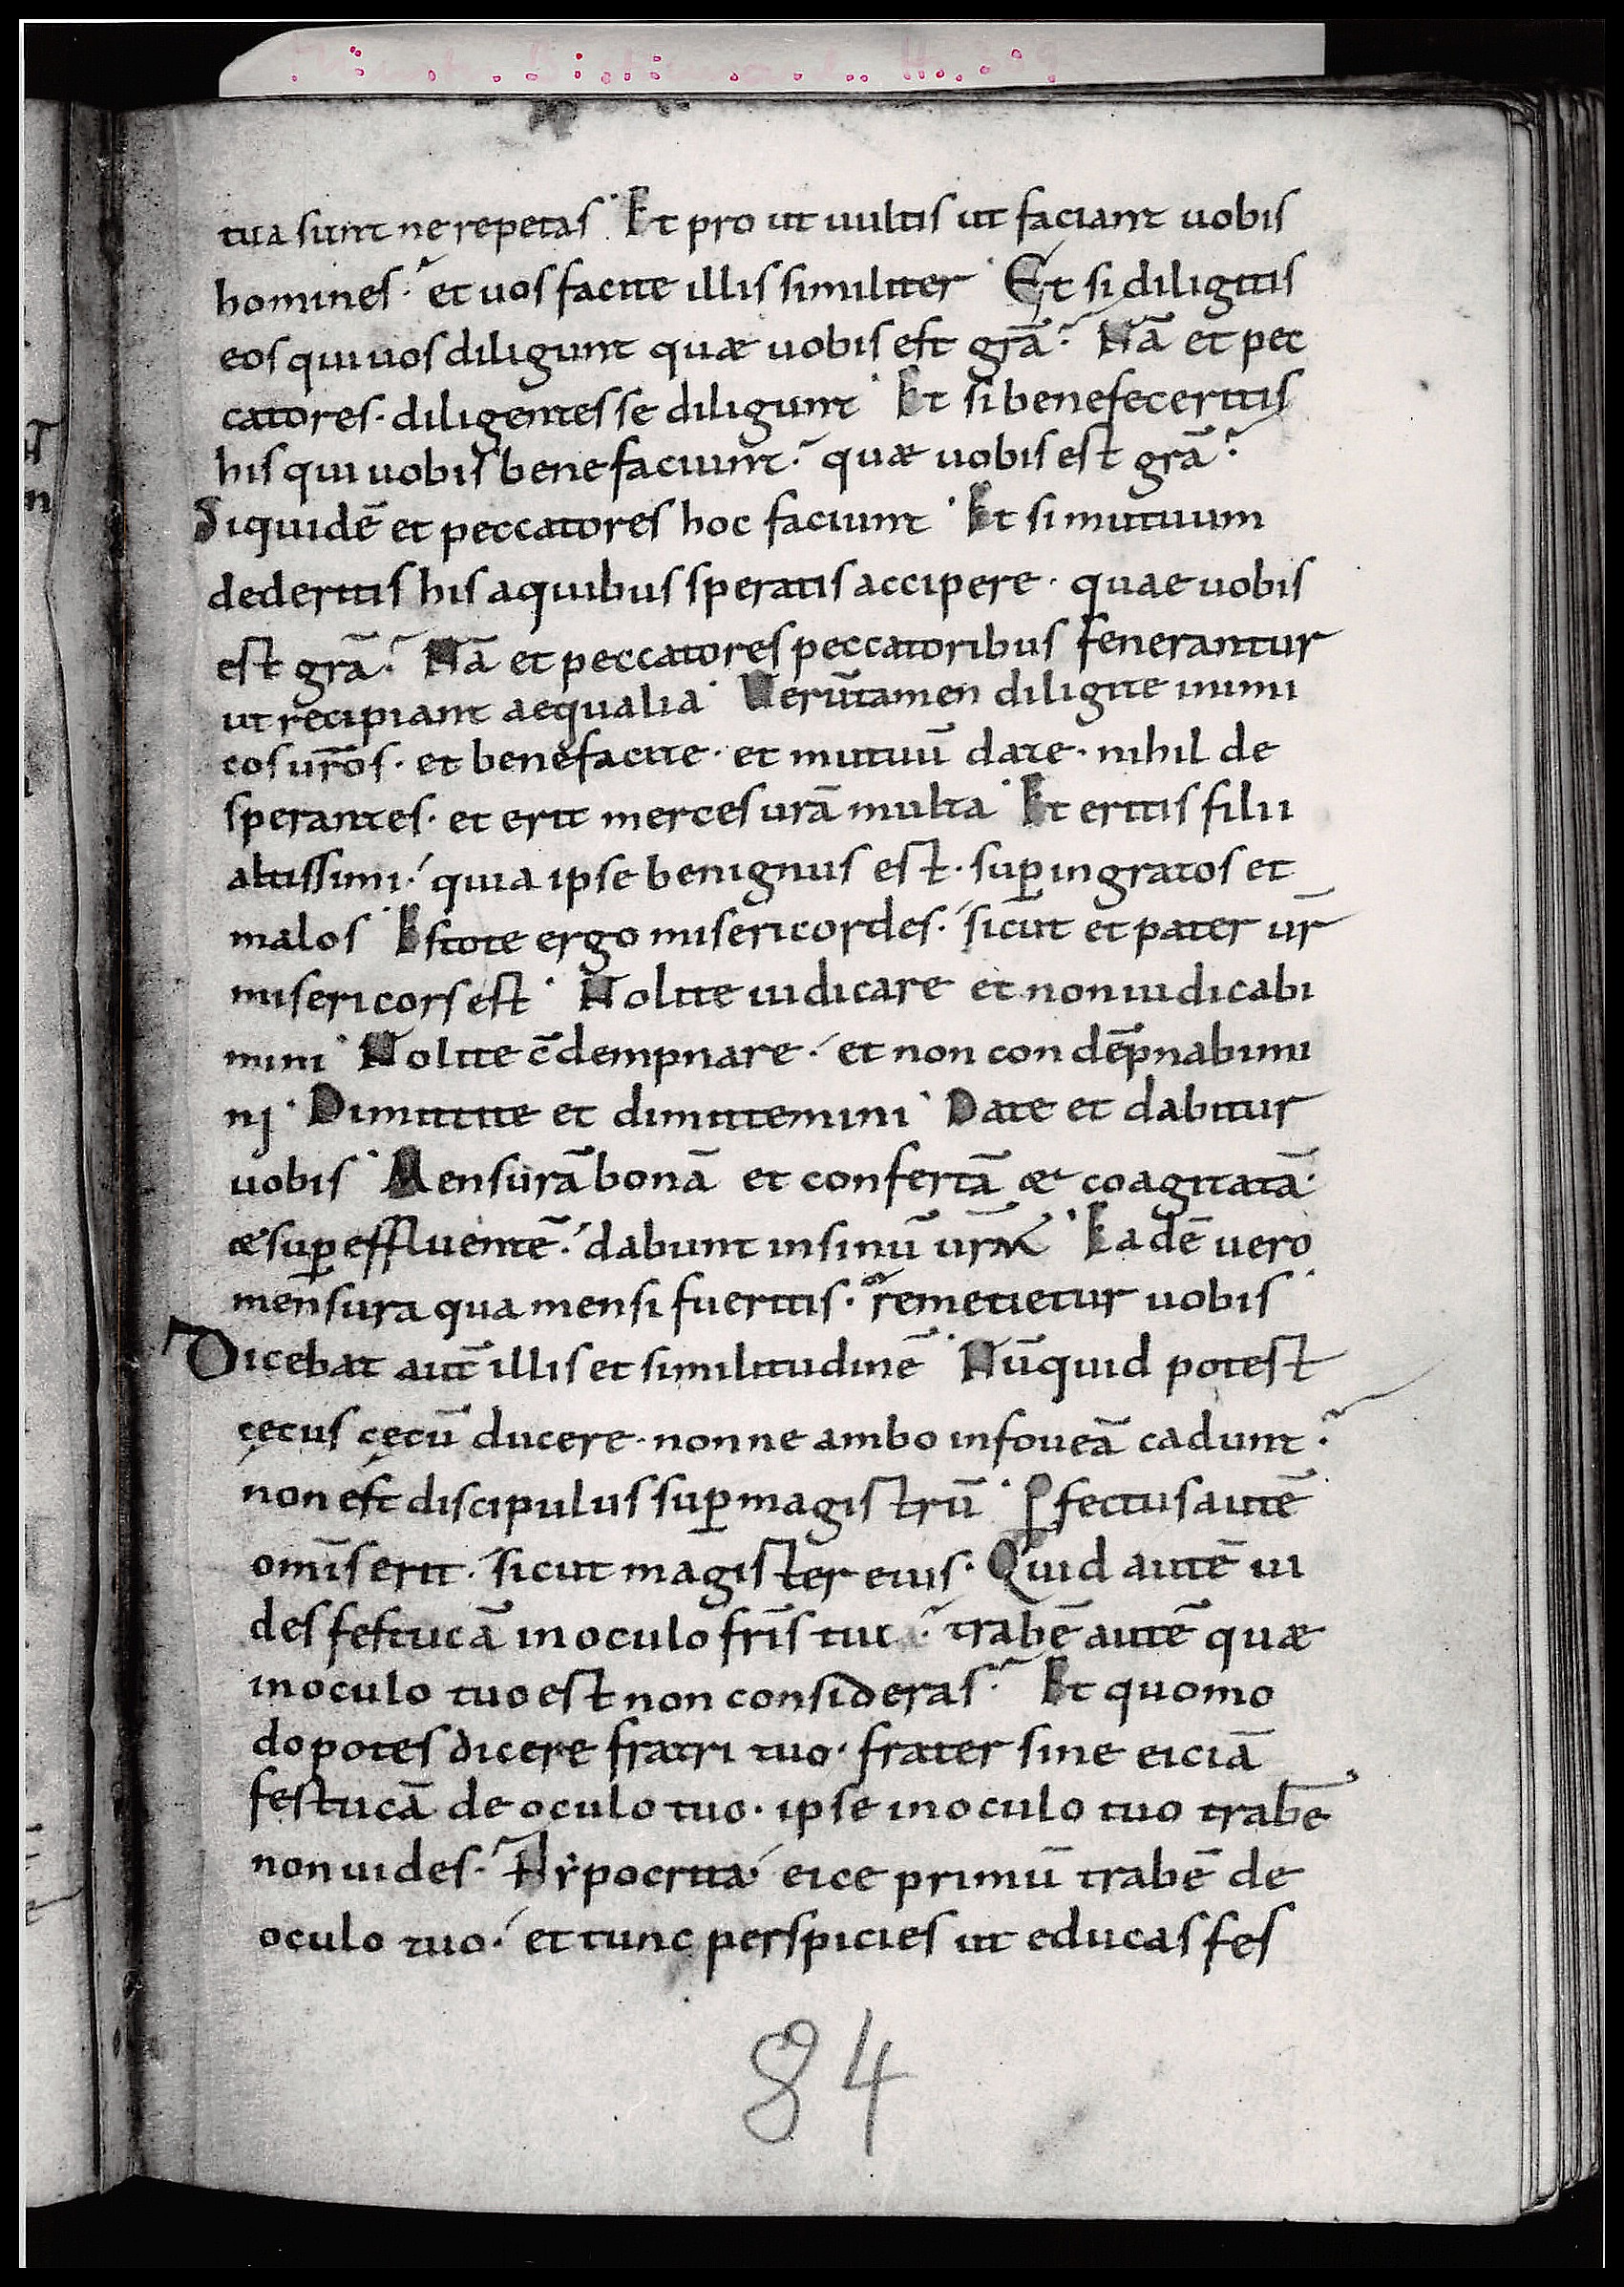 tua sunt ne repetas. Et pro ut uultis ut faciant uobis
homines. et uos facite illis similiter. Et si diligitis
eos qui uos diligunt quae uobis est grā? Nā et pec
catores. diligentes se diligunt. Et si benefeceritis
his qui uobis benefaciunt? quæ uobis est grā?
Siquidē et peccatores hoc faciunt. Et si mutuum
dederitis his a quibus speratis accipere. quae uobis
est grā? Nā et peccatores peccatoribus fenerantur
ut recipiant aequalia. Uerūtamen diligite inimi
cos ur̄os. et benefacite. et mutuū date. nihil de
sperantes. et erit merces urā multa. Et eritis filii
altissimi. quia ipse benignus est. sup̱ ingratos et
malos. Estote ergo misericordes. sicut et pater ur̄
misericors est. Nolite iudicare et non iudicabi
mini. Nolite c̄dempnare. et non con dēpnabimi
nj. Dimittite et dimittemini. Date et dabitur
uobis. Mensurā bonā et confertā æ coagitatā.
æ sup̱effluentē. dabunt in sinū urm̄. Eadē uero
mensura qua mensi fueritis. remetietur uobis.
Dicebat aut̄ illis et similitudinē. Nūquid potest
cęcus cęcū ducere. nonne ambo in foueā cadunt?
non est discipulus sup̱ magistrū. P̱fectus autē
om̄is erit. sicut magister eius. Quid autē ui
des festucā in oculo fr̄is tui? trabē autē quæ
in oculo tuo est non consideras? Et quomo
do potes dicere fratri tuo. frater sine eiciā
festucā de oculo tuo. ipse in oculo tuo trabē
non uides? Hẏpocrita eice primū trabē de
oculo tuo. et tunc perspicies ut educas fes
84